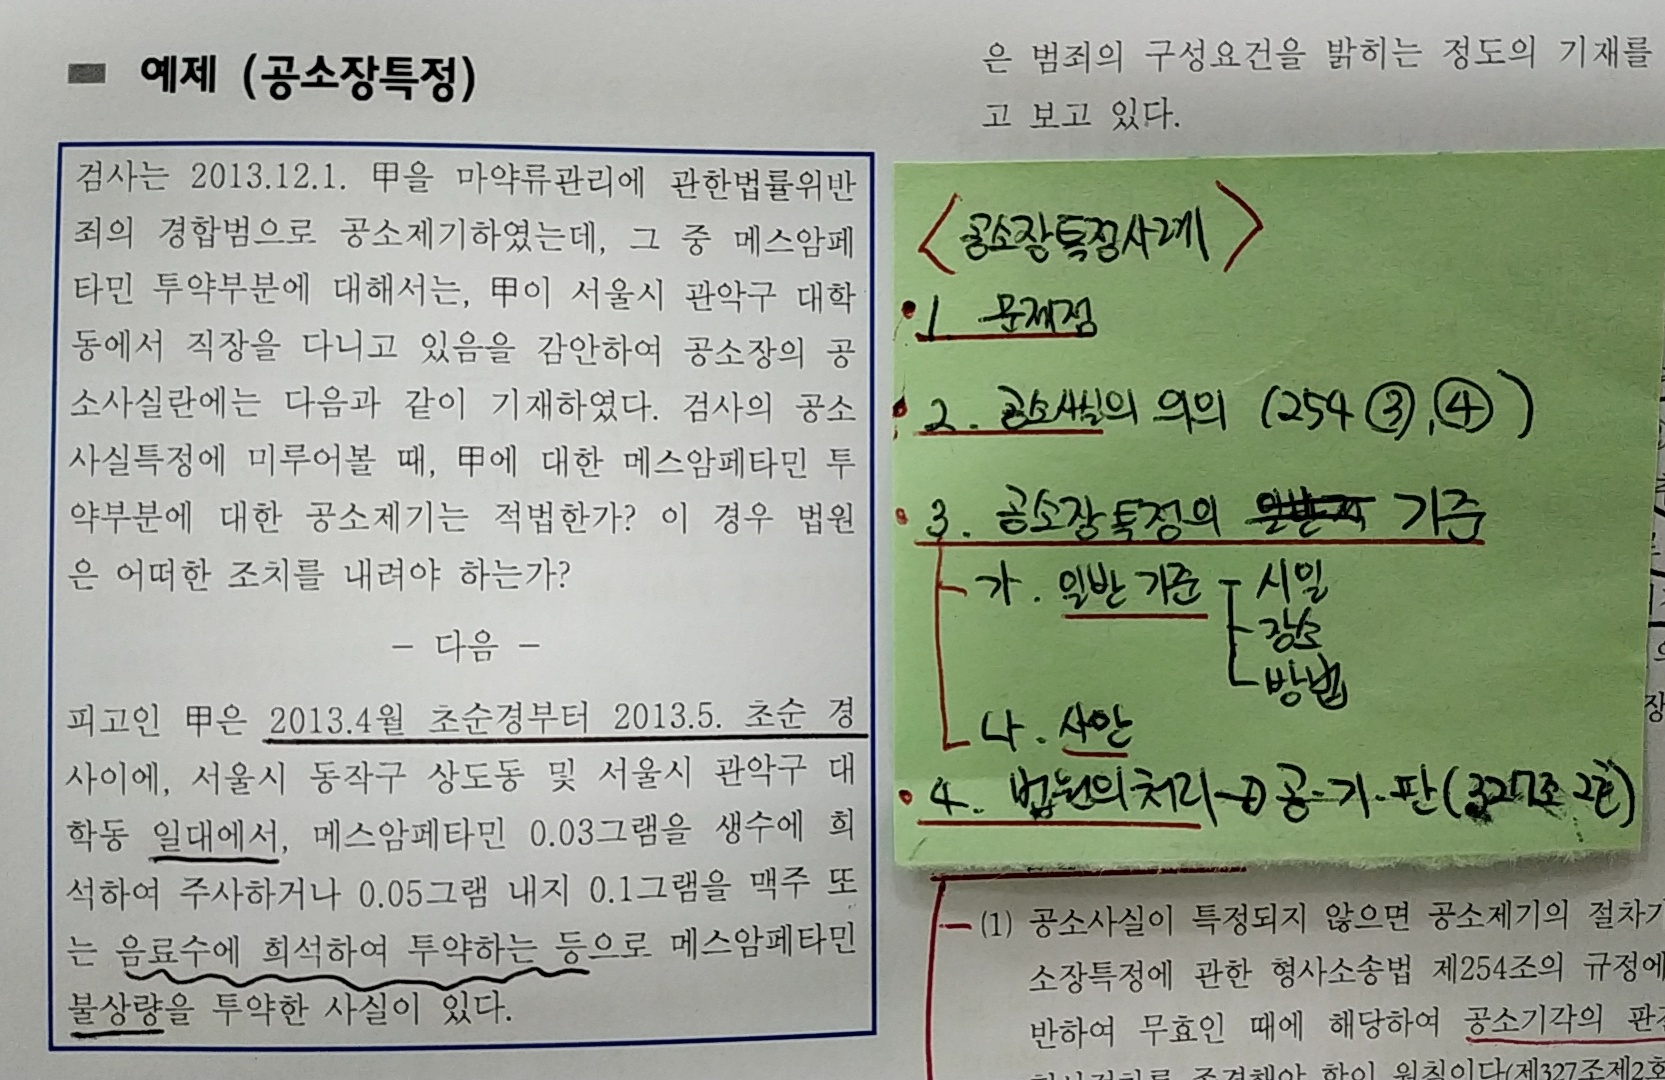 예제 (공소장특정)
검사는 2013.12.1. 甲을 마약류관리에 관한법률위반
죄의 경합범으로 공소제기하였는데, 그 중 메스암페
타민 투약부분에 대해서는, 甲이 서울시 관악구 대학
동에서 직장을 다니고 있음을 감안하여 공소장의 공
소사실란에는 다음과 같이 기재하였다. 검사의 공소
사실특정에 미루어볼 때, 甲에 대한 메스암페타민 투
약부분에 대한 공소제기는 적법한가? 이 경우 법원
은 어떠한 조치를 내려야 하는가?
- 다음 -
피고인 甲은 2013.4월 초순경부터 2013.5. 초순 경
사이에, 서울시 동작구 상도동 및 서울시 관악구 대
학동 일대에서, 메스암페타민 0.03그램을 생수에 희
석하여 주사하거나 0.05그램 내지 0.1그램을 맥주 또
는 음료수에 희석하여 투약하는 등으로 메스암페타민
불상량을 투약한 사실이 있다.
은 범죄의 구성요건을 밝히는 정도의 기재를
고 보고 있다.
<공소장특정사례>
1 문제점
2. 공소사실의 의의 (254 ③, ④)
3. 공소장특정의 기준
가. 일반 기준 시일
장소
방법
나. 사안
4. 법원의 처리 → 공·기·판 (327조 2호)
(1) 공소사실이 특정되지 않으면 공소제기의 절차가
소장특정에 관한 형사소송법 제254조의 규정에
반하여 무효인 때에 해당하여 공소기각의 판
원칙이다(제327조제2호